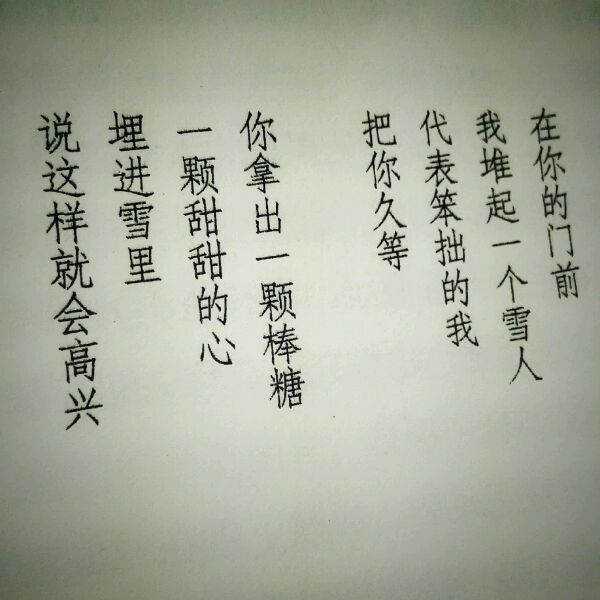 在你的门前
我堆起一个雪人
代表笨拙的我
把你久等
你拿出一颗棒糖
一颗甜甜的心
埋进雪里
说这样就会高兴